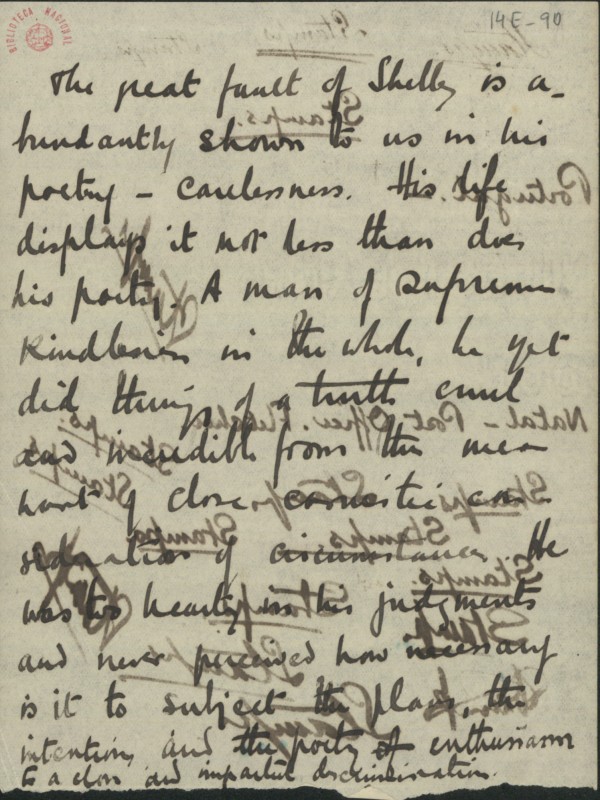 14E-90
BIBLIOTECA NACIONAL
The great fault of Shelley is a-
bundantly shown to us in his
poetry – carelessness. His life
displays it not less than does
his poetry. A man of supreme
kindliness in the whole, he yet
did things of a truth cruel
and incredible from the mere
want of close con-
sideration of circumstance. He
was too hearty in his judgments
and never perceived how necessary
is it to subject the plans, the
intentions and the poetry of enthusiasm
to a close and impartial discrimination.
Stamps
Stamps
Stamps
Portugal.
Natal – Post Office.
Stamps
Stamps
Stamps
Stamps
Stamps
Stamps